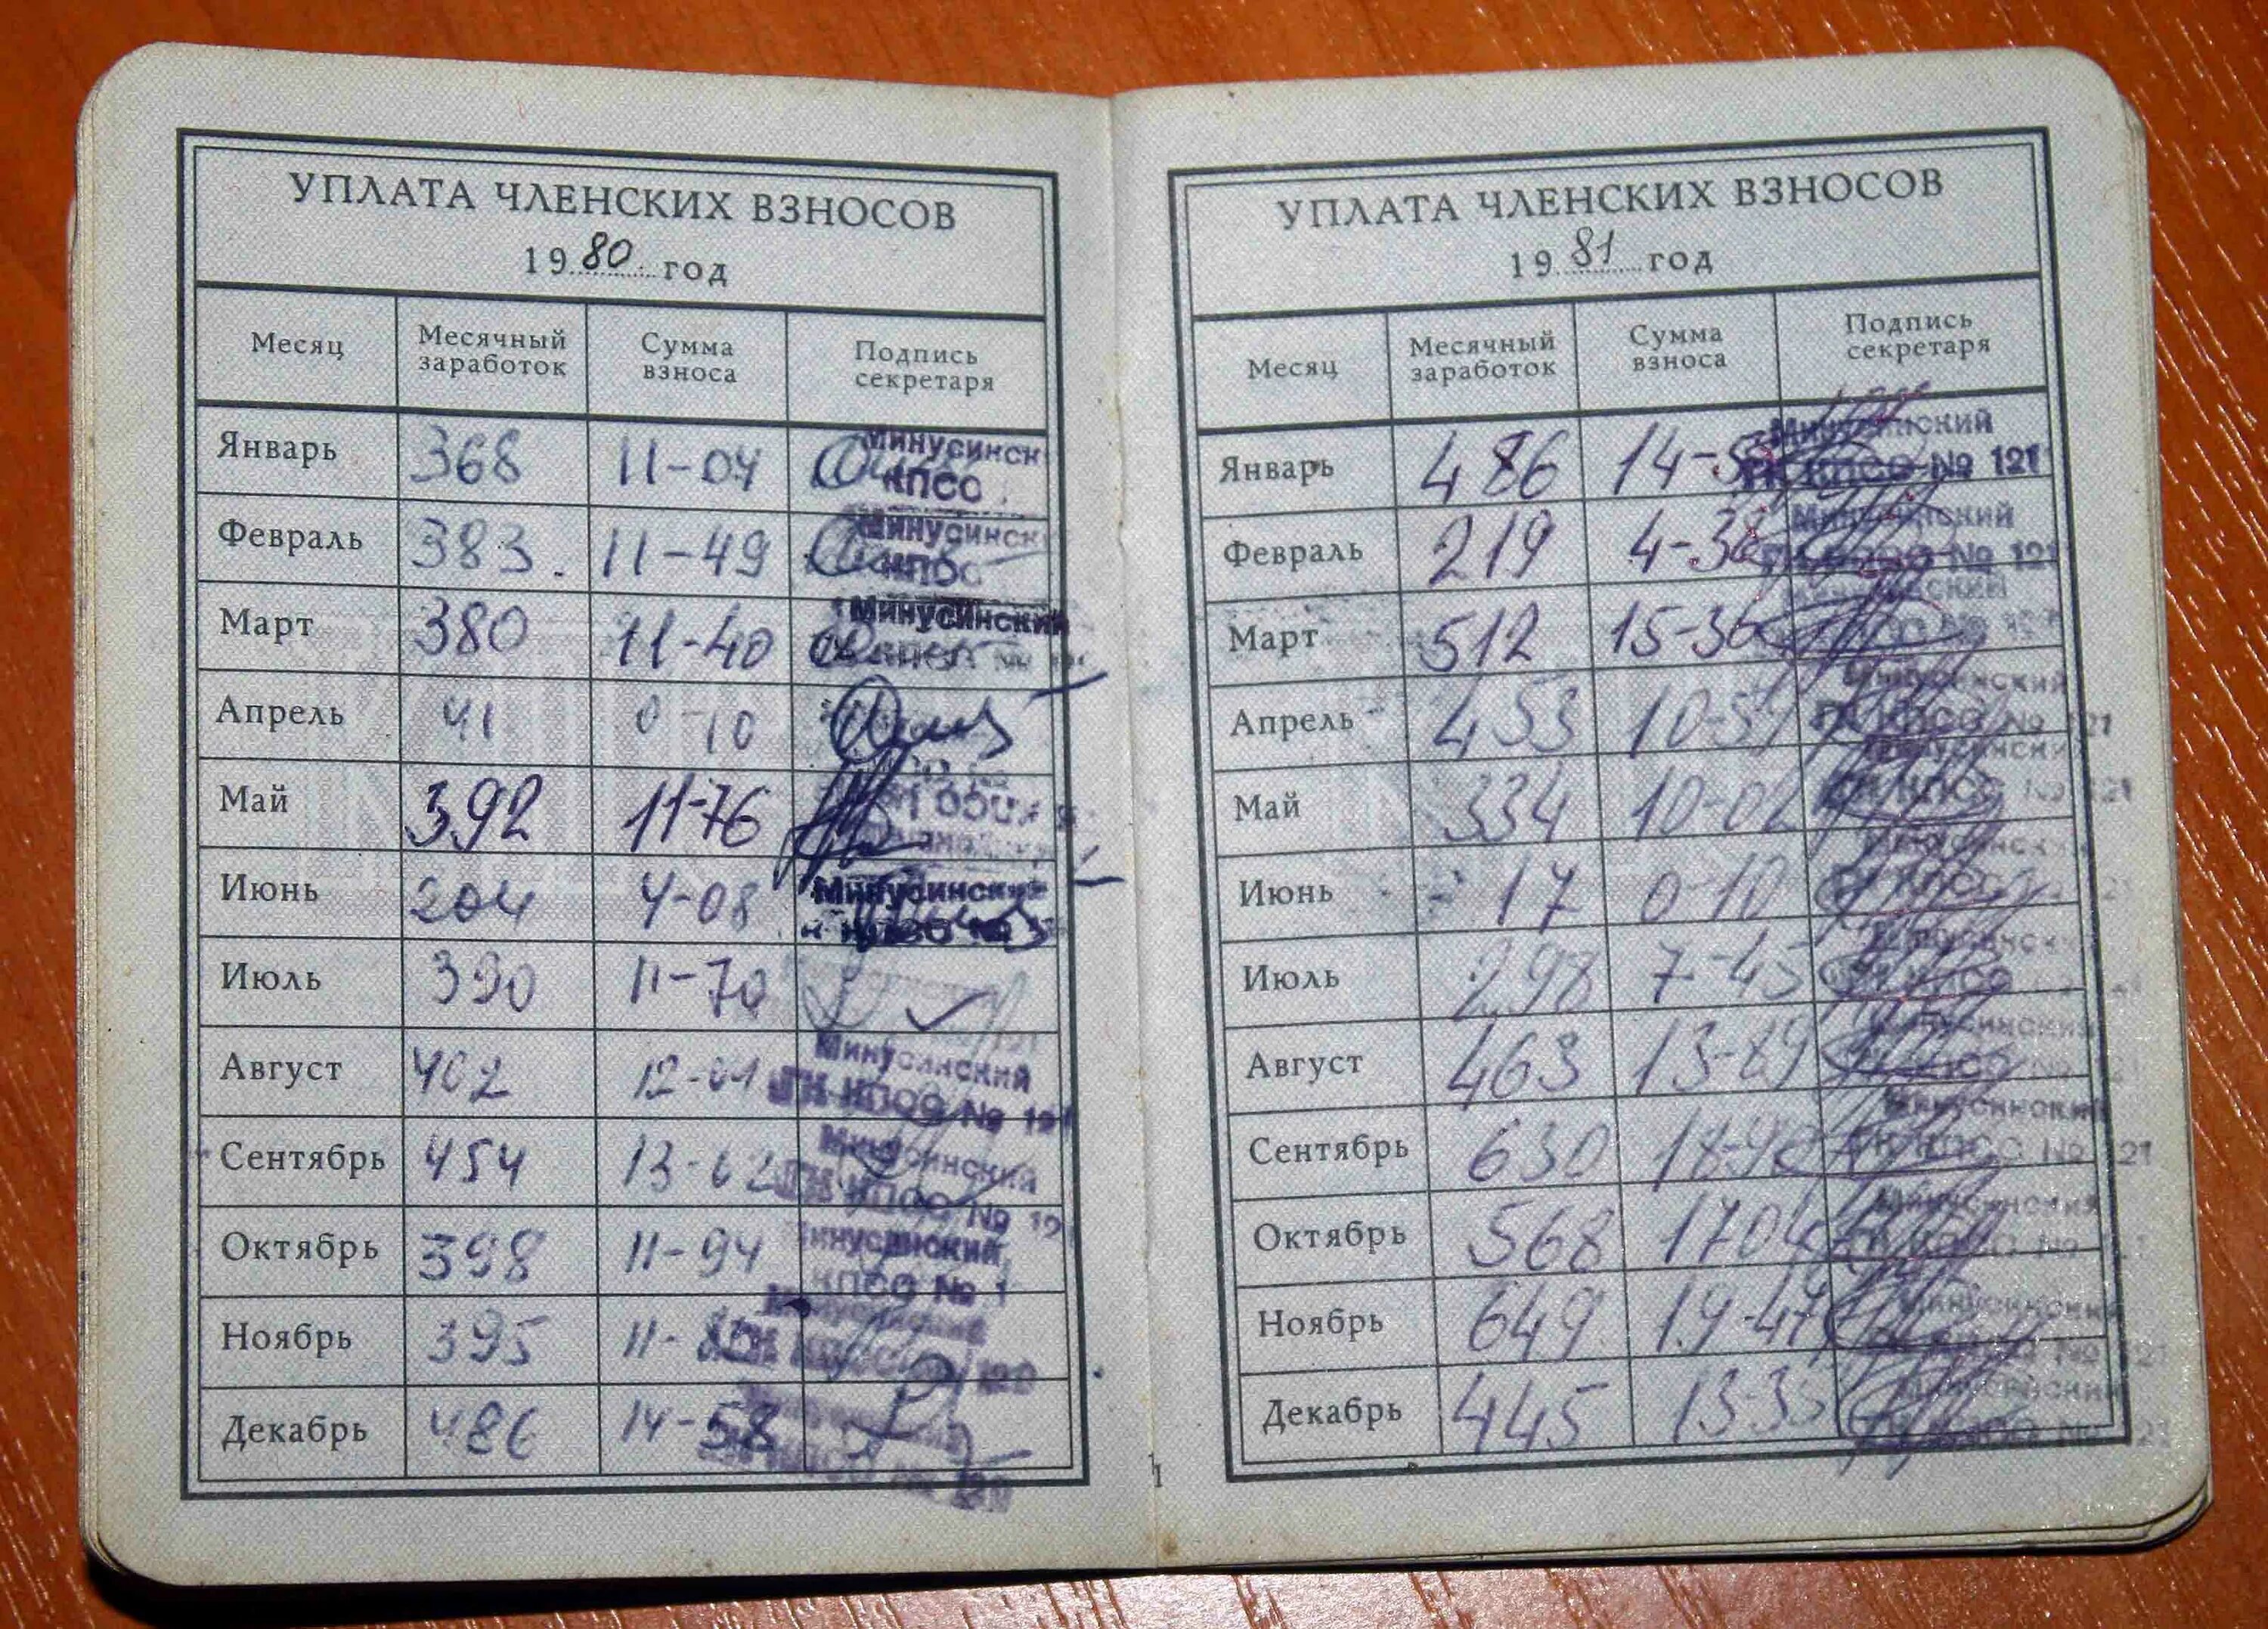 УПЛАТА ЧЛЕНСКИХ ВЗНОСОВ
1980 год
Месяц Месячный заработок Сумма взноса Подпись секретаря
Январь 368 11-04 Минусинск КПСС
Февраль 383. 11-49 Минусинск КПСС
Март 380 11-40 Минусинский
Апрель 41 0-10
Май 392 11-76
Июнь 204 4-08 Минусинский КПСС №
Июль 390 11-70
Август 402 12-01 Минусинский ГК КПСС № 121
Сентябрь 454 13-62 Минусинский ГК КПСС № 12
Октябрь 398 11-94 Минусинский КПСС № 1
Ноябрь 395 11-
Декабрь 486 14-58
УПЛАТА ЧЛЕНСКИХ ВЗНОСОВ
1981 год
Месяц Месячный заработок Сумма взноса Подпись секретаря
Январь 486 14-5 Минусинский ГК КПСС № 121
Февраль 219 4-38 Минусинский ГК КПСС № 121
Март 512 15-36
Апрель 453 10-59 Минусинский ГК КПСС № 121
Май 334 10-02 Минусинский ГК КПСС № 121
Июнь 17 0-10
Июль 298 7-45
Август 463 13-89 Минусинский КПСС № 121
Сентябрь 630 18-90 Минусинский ГК КПСС № 121
Октябрь 568 1704 Минусинский
Ноябрь 649 19-47 Минусинский № 121
Декабрь 445 13-35 Минусинский ГК КПСС № 121